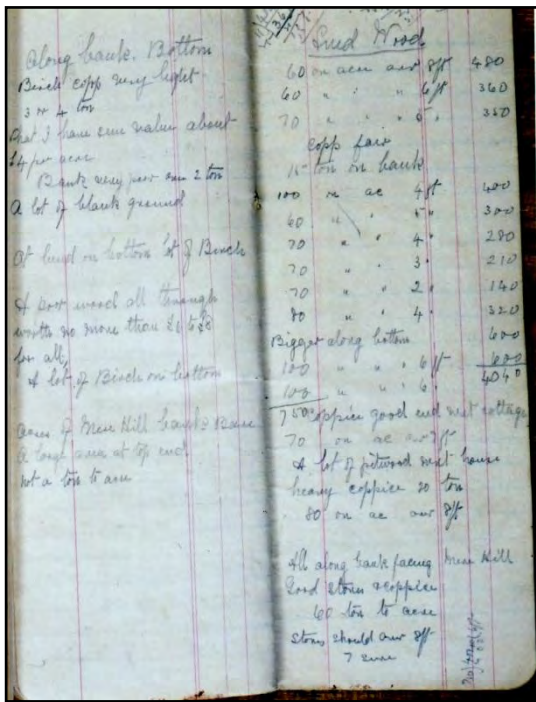 Along bank. Bottom
Birch copp very light
3 or 4 ton
What I have seen value about
£4 per acre
Bank very poor 2 ton
A lot of blank ground
At bend on bottom lot of Birch
A poor wood all through
worth no more than to £8
for all,
A lot of Birch on bottom
acres of Mere Hill bank Bare
A large area at top end
not a ton to acre
Wood
60 on acre aver 8ft 480
60 " " " 6ft 360
70 " " " 5 " 350
Copp fair
15 ton on bank
100 on ac 4ft 400
60 " " 5 " 300
70 " " 4 " 280
70 " " 3 " 210
70 " " 2 " 140
80 " " 4 " 320
Bigger along bottom 600
100 " " " 6 ft 600
100 " " " 6 " 4040
750 Coppice good end next cottage
70 on ac aver 7ft
A lot of pitwood next house
heavy coppice 20 ton
80 on ac aver 8ft
All along bank facing Mere Hill
Good stores & coppice
60 ton to acre
Stores should aver 8ft
7 sure